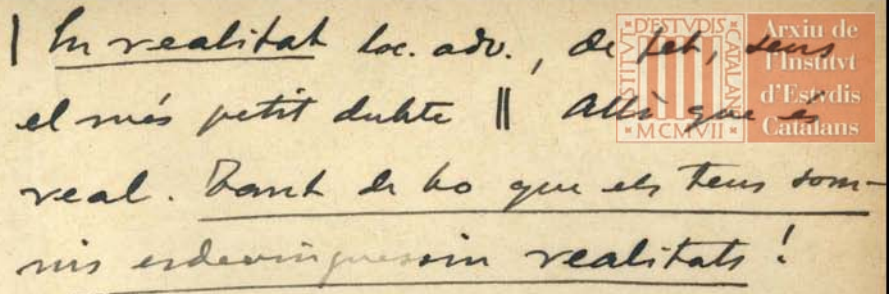 | En realitat loc. adv., de fet, sens
el més petit dubte || Allò que és
real. Tant de bo que els teus som-
nis esdevinguessin realitats!
INSTITVT D'ESTVDIS CATALANS
MCMVII
Arxiu de
l'Institvt
d'Estvdis
Catalans